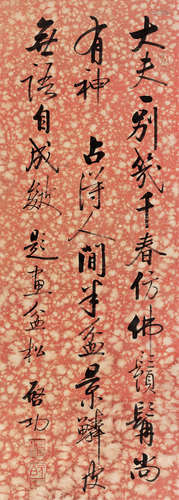 大夫一別幾千春仿佛鬚髯尚
有神 占得人間半盆景鱗皮
無語自成皴 題畫盆松 啓功